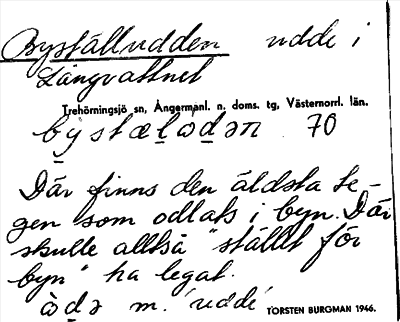 Byställudden udde i
Långvattnet
Trehörningsjö sn, Ångermanl. n. doms. tg, Västernorrl. län.
by stæl ɷdən 70
Där finns den äldsta te-
gen som odlats i byn. Där
skulle alltså "stället för
byn" ha legat.
ɷ̀də m. 'udde'
TORSTEN BURGMAN 1946.